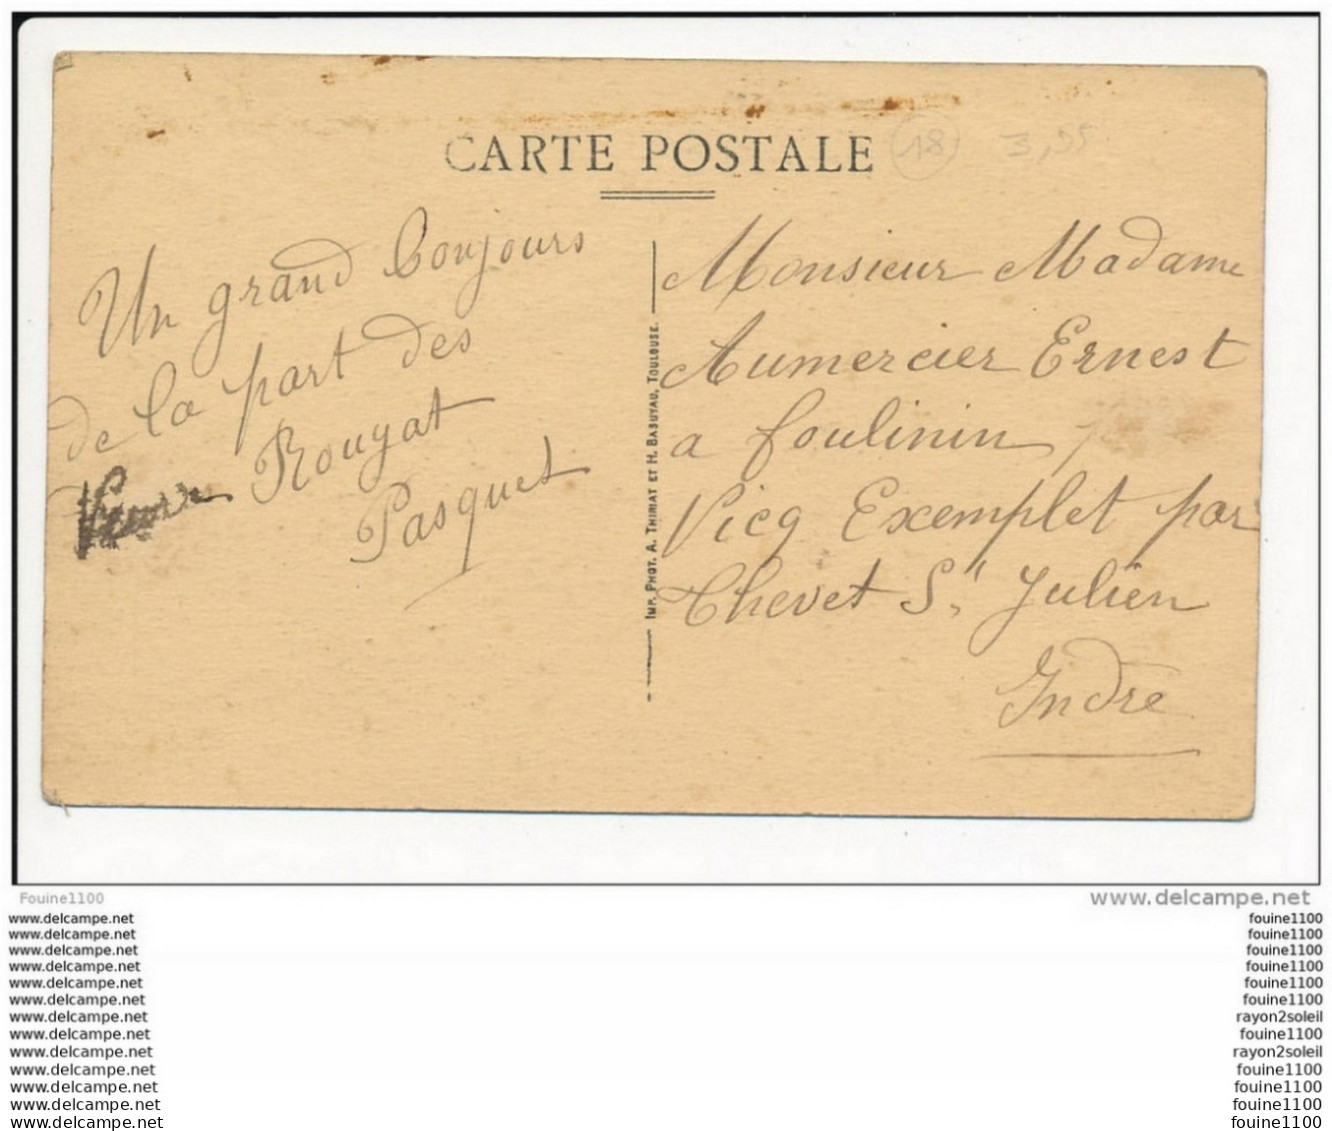 CARTE POSTALE
18
3,55
Un grand bonjours
de la part des
Rougat
Pasquet
IMP. PHOT. A. THIRIAT ET H. BASUYAU, TOULOUSE.
Monsieur Madame
Aumercier Ernest
a foulinin
Vicq Exemplet par
Chevet St Julien
Indre
Fouine1100
www.delcampe.net
www.delcampe.net fouine1100
www.delcampe.net fouine1100
www.delcampe.net fouine1100
www.delcampe.net fouine1100
www.delcampe.net fouine1100
www.delcampe.net fouine1100
www.delcampe.net rayon2soleil
www.delcampe.net fouine1100
www.delcampe.net rayon2soleil
www.delcampe.net fouine1100
www.delcampe.net fouine1100
www.delcampe.net fouine1100
www.delcampe.net fouine1100